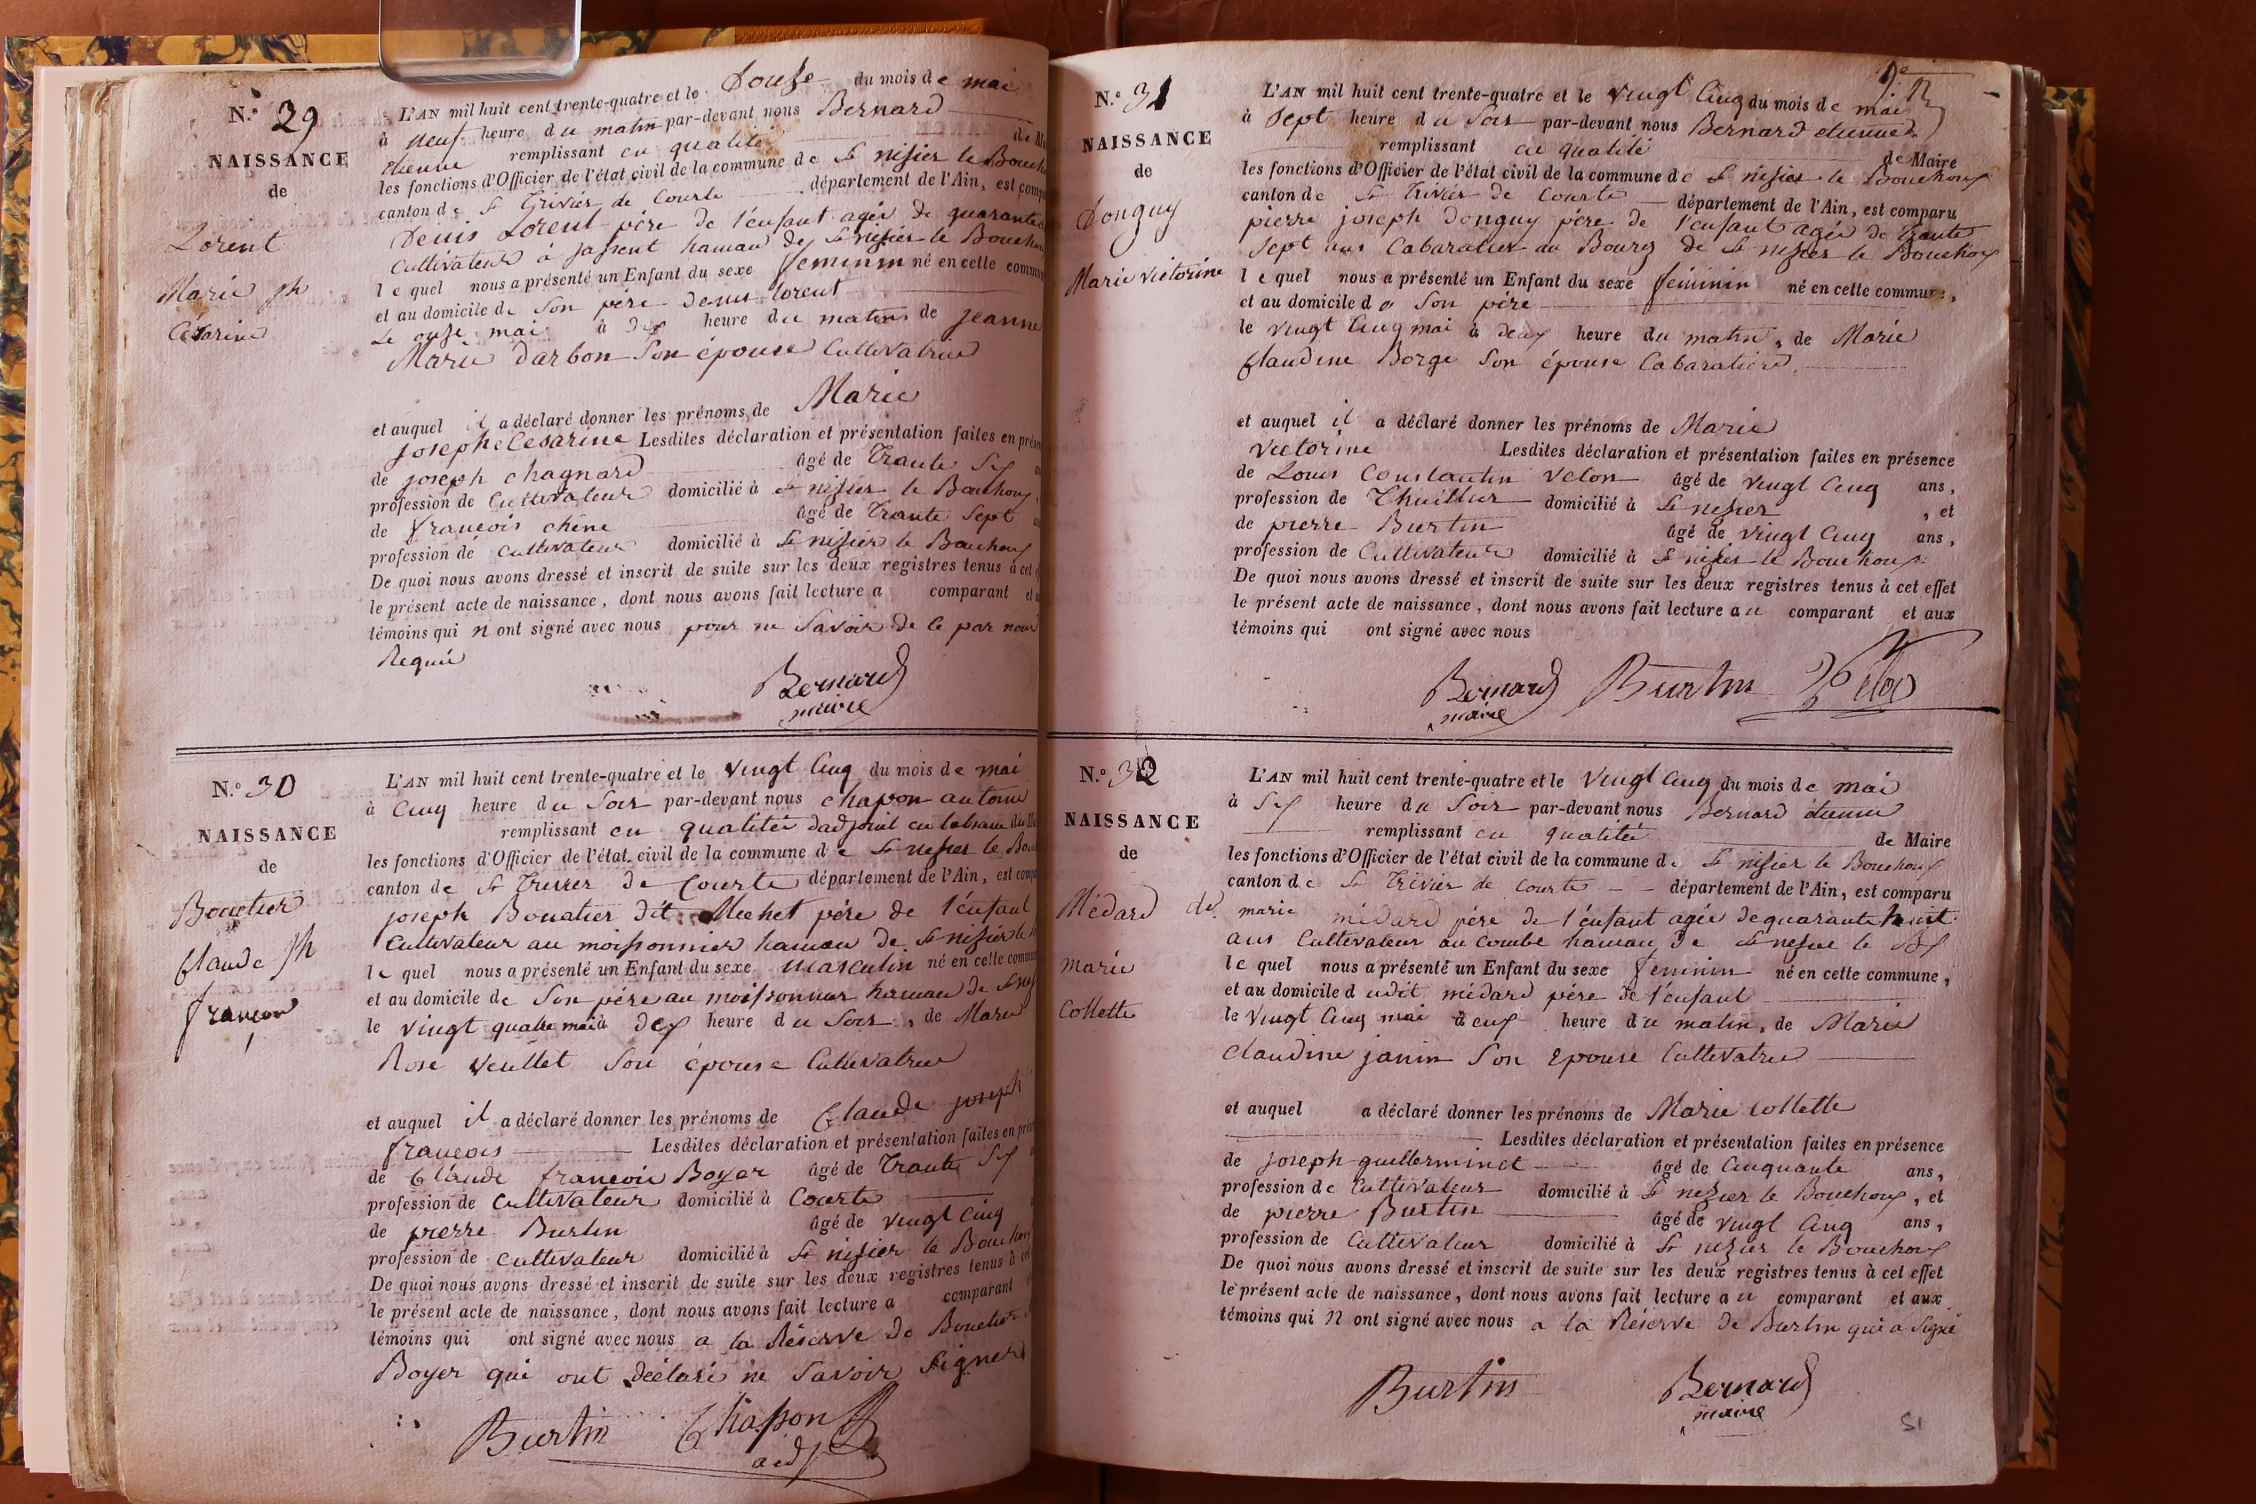 N.° 29
NAISSANCE
de
Lorent
Marie jh
Césarine
L'AN mil huit cent trente-quatre et le Douse du mois de mai
à neuf heure du matin par-devant nous Bernard
étienne remplissant en qualité de M
les fonctions d'Officier de l'état civil de la commune de St nisier le Bouch
canton de St Trivier de Courte département de l'Ain, est comp
Denis Lorent père de l'enfant agée de quarante
Cultivateur à jassent hamau de St nisier le Bouchou
le quel nous a présenté un Enfant du sexe feminin né en cette commu
et au domicile de Son père denis lorent
Le onse mai à dix heure du matin de jeanne
Marie Darbon Son épouse Cultivatrice
et auquel il a déclaré donner les prénoms de Marie
josephe Cesarine Lesdites déclaration et présentation faites en prése
de joseph chagnard âgé de Trante Six
profession de Cultivateur domicilié à St nisier le Bouhoux
de françois chene âgé de Trante Sept
profession de cultivateur domicilié à St nisier le Bouhoux
De quoi nous avons dressé et inscrit de suite sur les deux registres tenus à cet
le présent acte de naissance, dont nous avons fait lecture a comparant et
témoins qui n ont signé avec nous pour ne Savoir de ce par nous
Requis
Bernard
maire
N.° 30
NAISSANCE
de
Bouctier
Claude jh
françois
L'AN mil huit cent trente-quatre et le vingt Cinq du mois de mai
à Cinq heure du Soir par-devant nous chapon antoine
remplissant en qualitée dadjoint en labsance du M
les fonctions d'Officier de l'état civil de la commune de St nisier le Bou
canton de St Trivier de Courte département de l'Ain, est comp
joseph Bouatier dit Michet père de l'enfant
Cultivateur au moissonnier hamau de St nisier le
le quel nous a présenté un Enfant du sexe masculin né en cette commun
et au domicile de Son père au moissonnier hamau de St nis
le vingt quatre mai à dix heure du Soir, de Marie
Rose veullet Son épouse Cultivatrice
et auquel il a déclaré donner les prénoms de Claude joseph
françois Lesdites déclaration et présentation faites en prése
de Claude françois Boyer âgé de Trante Six
profession de cultivateur domicilié à Courte
de pierre Burtin âgé de vingt cinq
profession de cultivateur domicilié à St nisier le Bouchoux
De quoi nous avons dressé et inscrit de suite sur les deux registres tenus à cet
le présent acte de naissance, dont nous avons fait lecture a comparant
témoins qui ont signé avec nous a la Réserve de Bouctier
Boyer qui ont déclaré ne Savoir Signer
Burtin Chapon
adj
N.° 31
NAISSANCE
de
Donguy
Marie victorine
L'AN mil huit cent trente-quatre et le vingt Cinq du mois de mai
à Sept heure du Soir par-devant nous Bernard étienne
remplissant en qualité de Maire
les fonctions d'Officier de l'état civil de la commune de St nisier le Bouchoux
canton de St Trivier de Courte département de l'Ain, est comparu
pierre joseph donguy père de l'enfant agée de Trante
Sept ans Cabaratier au Bourg de St nisier le Bouchoux
le quel nous a présenté un Enfant du sexe feminin né en cette commune,
et au domicile de Son père
le vingt Cinq mai à deux heure du matin, de Marie
Claudine Borge Son épouse Cabaratière
et auquel il a déclaré donner les prénoms de Marie
victorine Lesdites déclaration et présentation faites en présence
de Louis Constantin velon âgé de vingt Cinq ans,
profession de Thuillier domicilié à St nisier, et
de pierre Burtin âgé de vingt Cinq ans,
profession de Cultivateur domicilié à St nisier le Bouchoux
De quoi nous avons dressé et inscrit de suite sur les deux registres tenus à cet effet
le présent acte de naissance, dont nous avons fait lecture au comparant et aux
témoins qui ont signé avec nous
Bernard Burtin
maire
N.° 32
NAISSANCE
de
Médard
marie
Collette
L'AN mil huit cent trente-quatre et le vingt Cinq du mois de mai
à Six heure du Soir par-devant nous Bernard étienne
remplissant en qualitée de Maire
les fonctions d'Officier de l'état civil de la commune de St nisier le Bouchoux
canton de St Trivier de Courte département de l'Ain, est comparu
marie médard père de l'enfant agée de quarante huit
ans Cultivateur au Combe hamau de St nisier le Bx
le quel nous a présenté un Enfant du sexe feminin né en cette commune,
et au domicile d udit médard père de l'enfant
le vingt Cinq mai heure du matin, de Marie
Claudine janin Son Epouse Cultivatrice
et auquel a déclaré donner les prénoms de Marie Collette
Lesdites déclaration et présentation faites en présence
de joseph guillerminet âgé de Cinquante ans,
profession de Cultivateur domicilié à St nezier le Bouchoux, et
de pierre Burtin âgé de vingt Cinq ans,
profession de Cultivateur domicilié à St nezier le Bouchoux
De quoi nous avons dressé et inscrit de suite sur les deux registres tenus à cet effet
le présent acte de naissance, dont nous avons fait lecture au comparant et aux
témoins qui n ont signé avec nous a la Réserve de Burtin qui a Signé
Burtin Bernard
maire
51